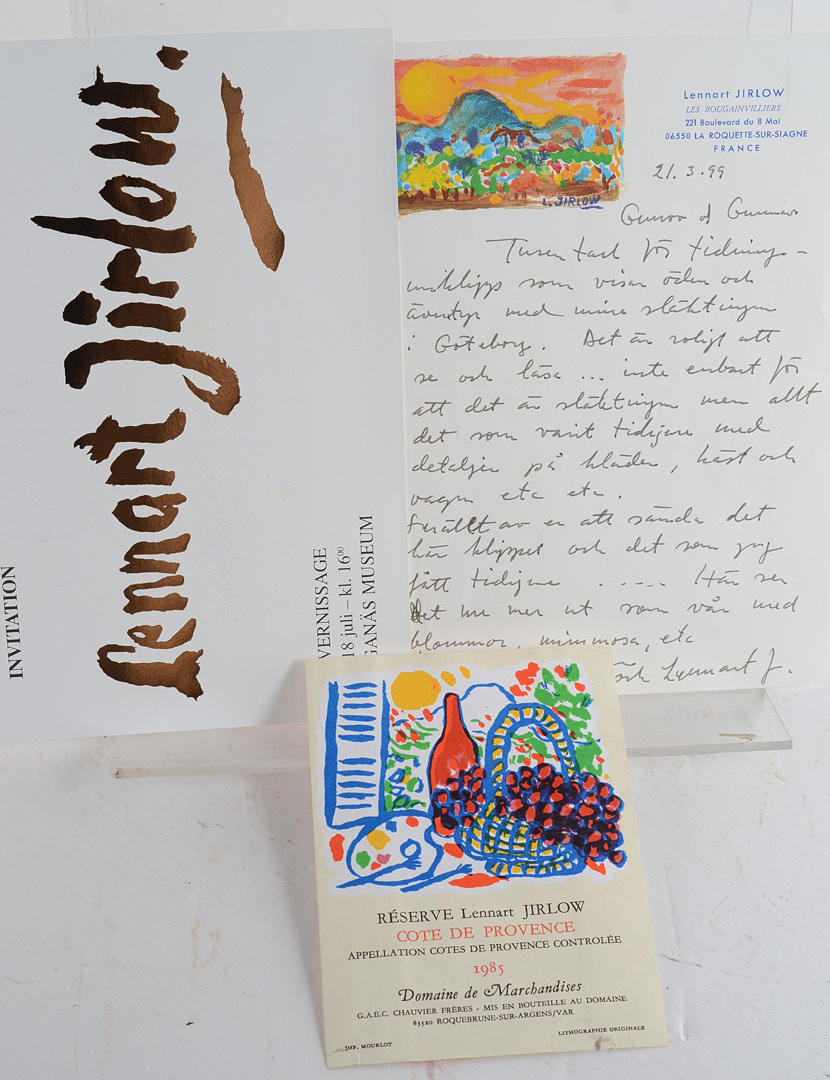 Lennart Jirlow.
INVITATION
VERNISSAGE
18 juli – kl. 16⁰⁰
GANÄS MUSEUM
L. JIRLOW
Lennart JIRLOW
LES BOUGAINVILLIERS
221 Boulevard du 8 Mai
06550 LA ROQUETTE-SUR-SIAGNE
FRANCE
21.3.99
och Gunnar
Tusen tack för tidnings-
urklipp som visar öden och
äventyr med mina släktingar
i Göteborg. Det är roligt att
se och läsa ... inte enbart för
att det är släktingar men allt
det som varit tidigare med
detaljer på kläder, häst och
vagn etc etc.
av er att sända det
här klippet och det som jag
fått tidigare ..... Här ser
det nu mer ut som vår med
blommor, mimmosa, etc
och Lennart J.
RÉSERVE Lennart JIRLOW
COTE DE PROVENCE
APPELLATION COTES DE PROVENCE CONTROLÉE
1985
Domaine de Marchandises
G.A.E.C. CHAUVIER FRÈRES - MIS EN BOUTEILLE AU DOMAINE
83520 ROQUEBRUNE-SUR-ARGENS/VAR
IMP. MOURLOT
LITHOGRAPHIE ORIGINALE